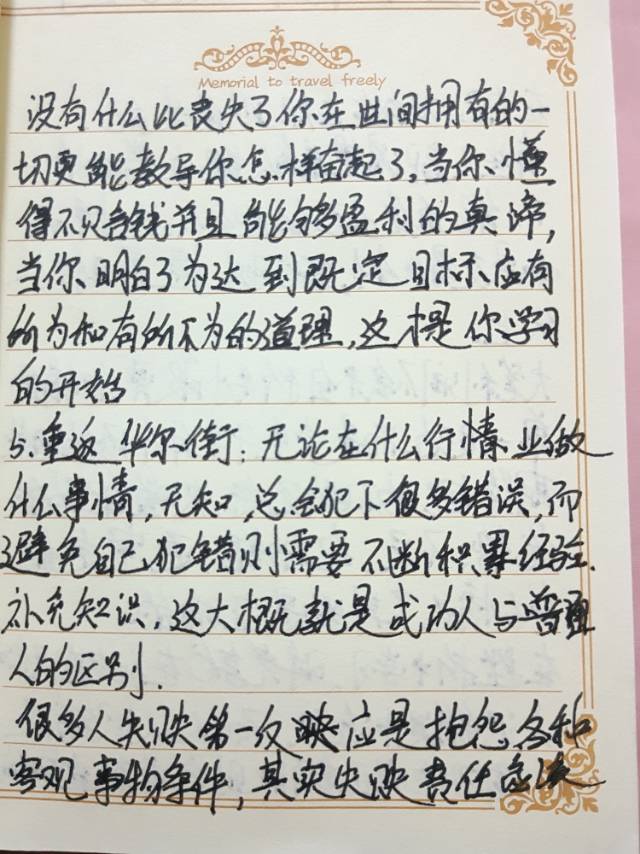 Memorial to travel freely
没有什么比丧失了你在世间拥有的一
切更能教导你怎样奋起了,当你懂
得不只会钱并且能够盈利的真谛,
当你明白了为达到既定目标应有
所为和有所不为的道理,这才是你学习
的开始
5.重返华尔街:无论在什么行情业做
什么事情,无知,总会犯下很多错误,而
避免自己犯错则需要不断积累经验.
补充知识,这大概就是成功人与普通
人的区别.
很多人失败第一反映应是抱怨各种
客观事物条件,其实失败责任应该